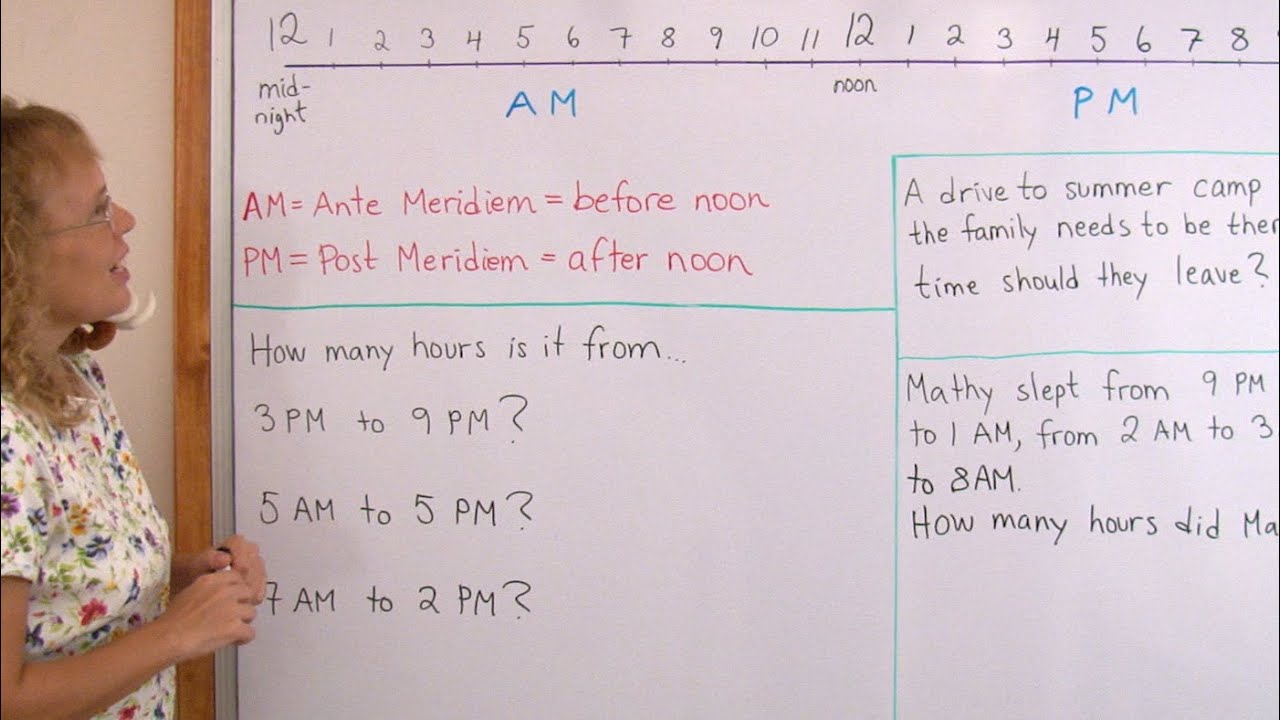 12 1 2 3 4 5 6 7 8 9 10 11 12 1 2 3 4 5 6 7 8
mid-
night
noon
AM
PM
AM = Ante Meridiem = before noon
PM = Post Meridiem = after noon
How many hours is it from...
3 PM to 9 PM?
5 AM to 5 PM?
7 AM to 2 PM?
A drive to summer camp
the family needs to be ther
time should they leave?
Mathy slept from 9 PM
to 1 AM, from 2 AM to 3
to 8AM.
How many hours did Ma